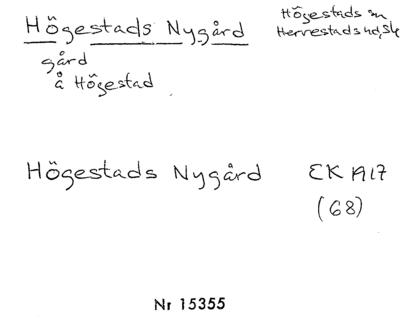 Högestads Nygård
Högestads sn
Herrestads hd, Sk
gård
å Högestad
Högestads Nygård EK 1917
(68)
Nr 15355